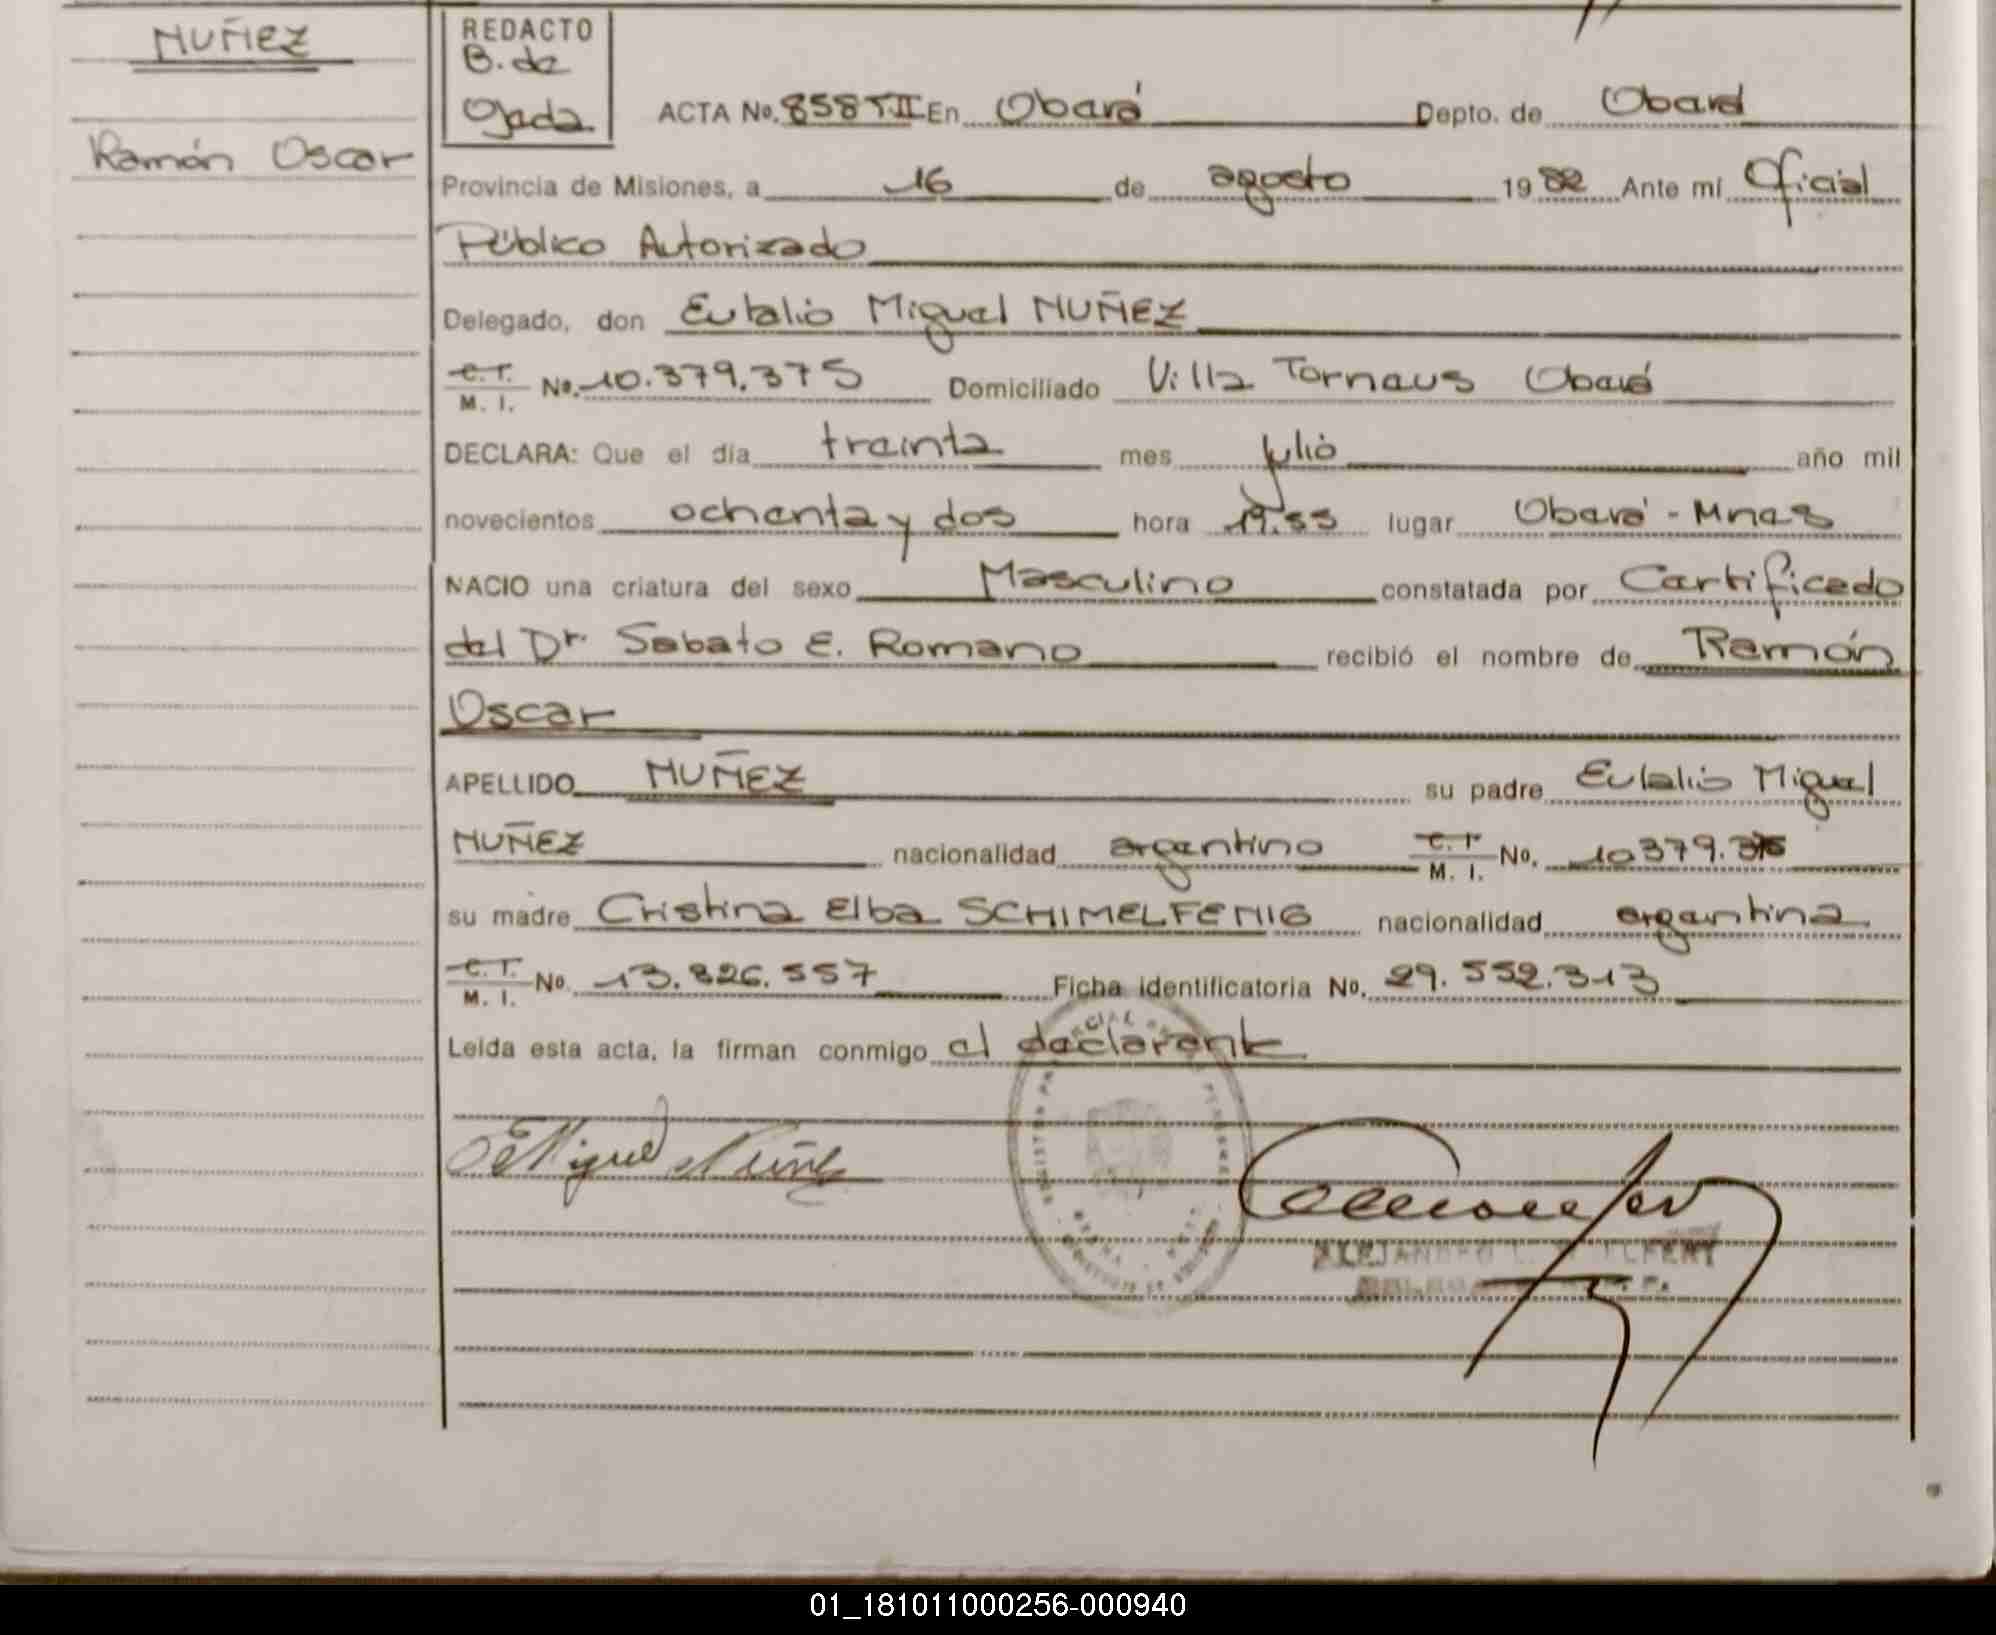 NUÑEZ
Ramón Oscar
REDACTO
B. de
Ojeda
ACTA No. 858 T.II En Oberá Depto. de Oberá
Provincia de Misiones, a 16 de agosto 1982 Ante mí Oficial
Público Autorizado
Delegado, don Eulalio Miguel NUÑEZ
C.I. M. I. No. 10.379.375 Domiciliado Villa Tornaus Oberá
DECLARA: Que el día treinta mes julio año mil
novecientos ochenta y dos hora 19.55 lugar Oberá - Mnes
NACIO una criatura del sexo Masculino constatada por Certificado
del Dr. Sabato E. Romano recibió el nombre de Ramón
Oscar
APELLIDO NUÑEZ su padre Eulalio Miguel
NUÑEZ nacionalidad argentino C.I. M. I. No. 10379.375
su madre Cristina Elba SCHIMELFENIG nacionalidad argentina
C.I. M. I. No. 13.826.557 Ficha identificatoria No. 29.552.313
Leída esta acta, la firman conmigo el declarante
E Miguel Nuñez
ALEJANDRO
01_181011000256-000940